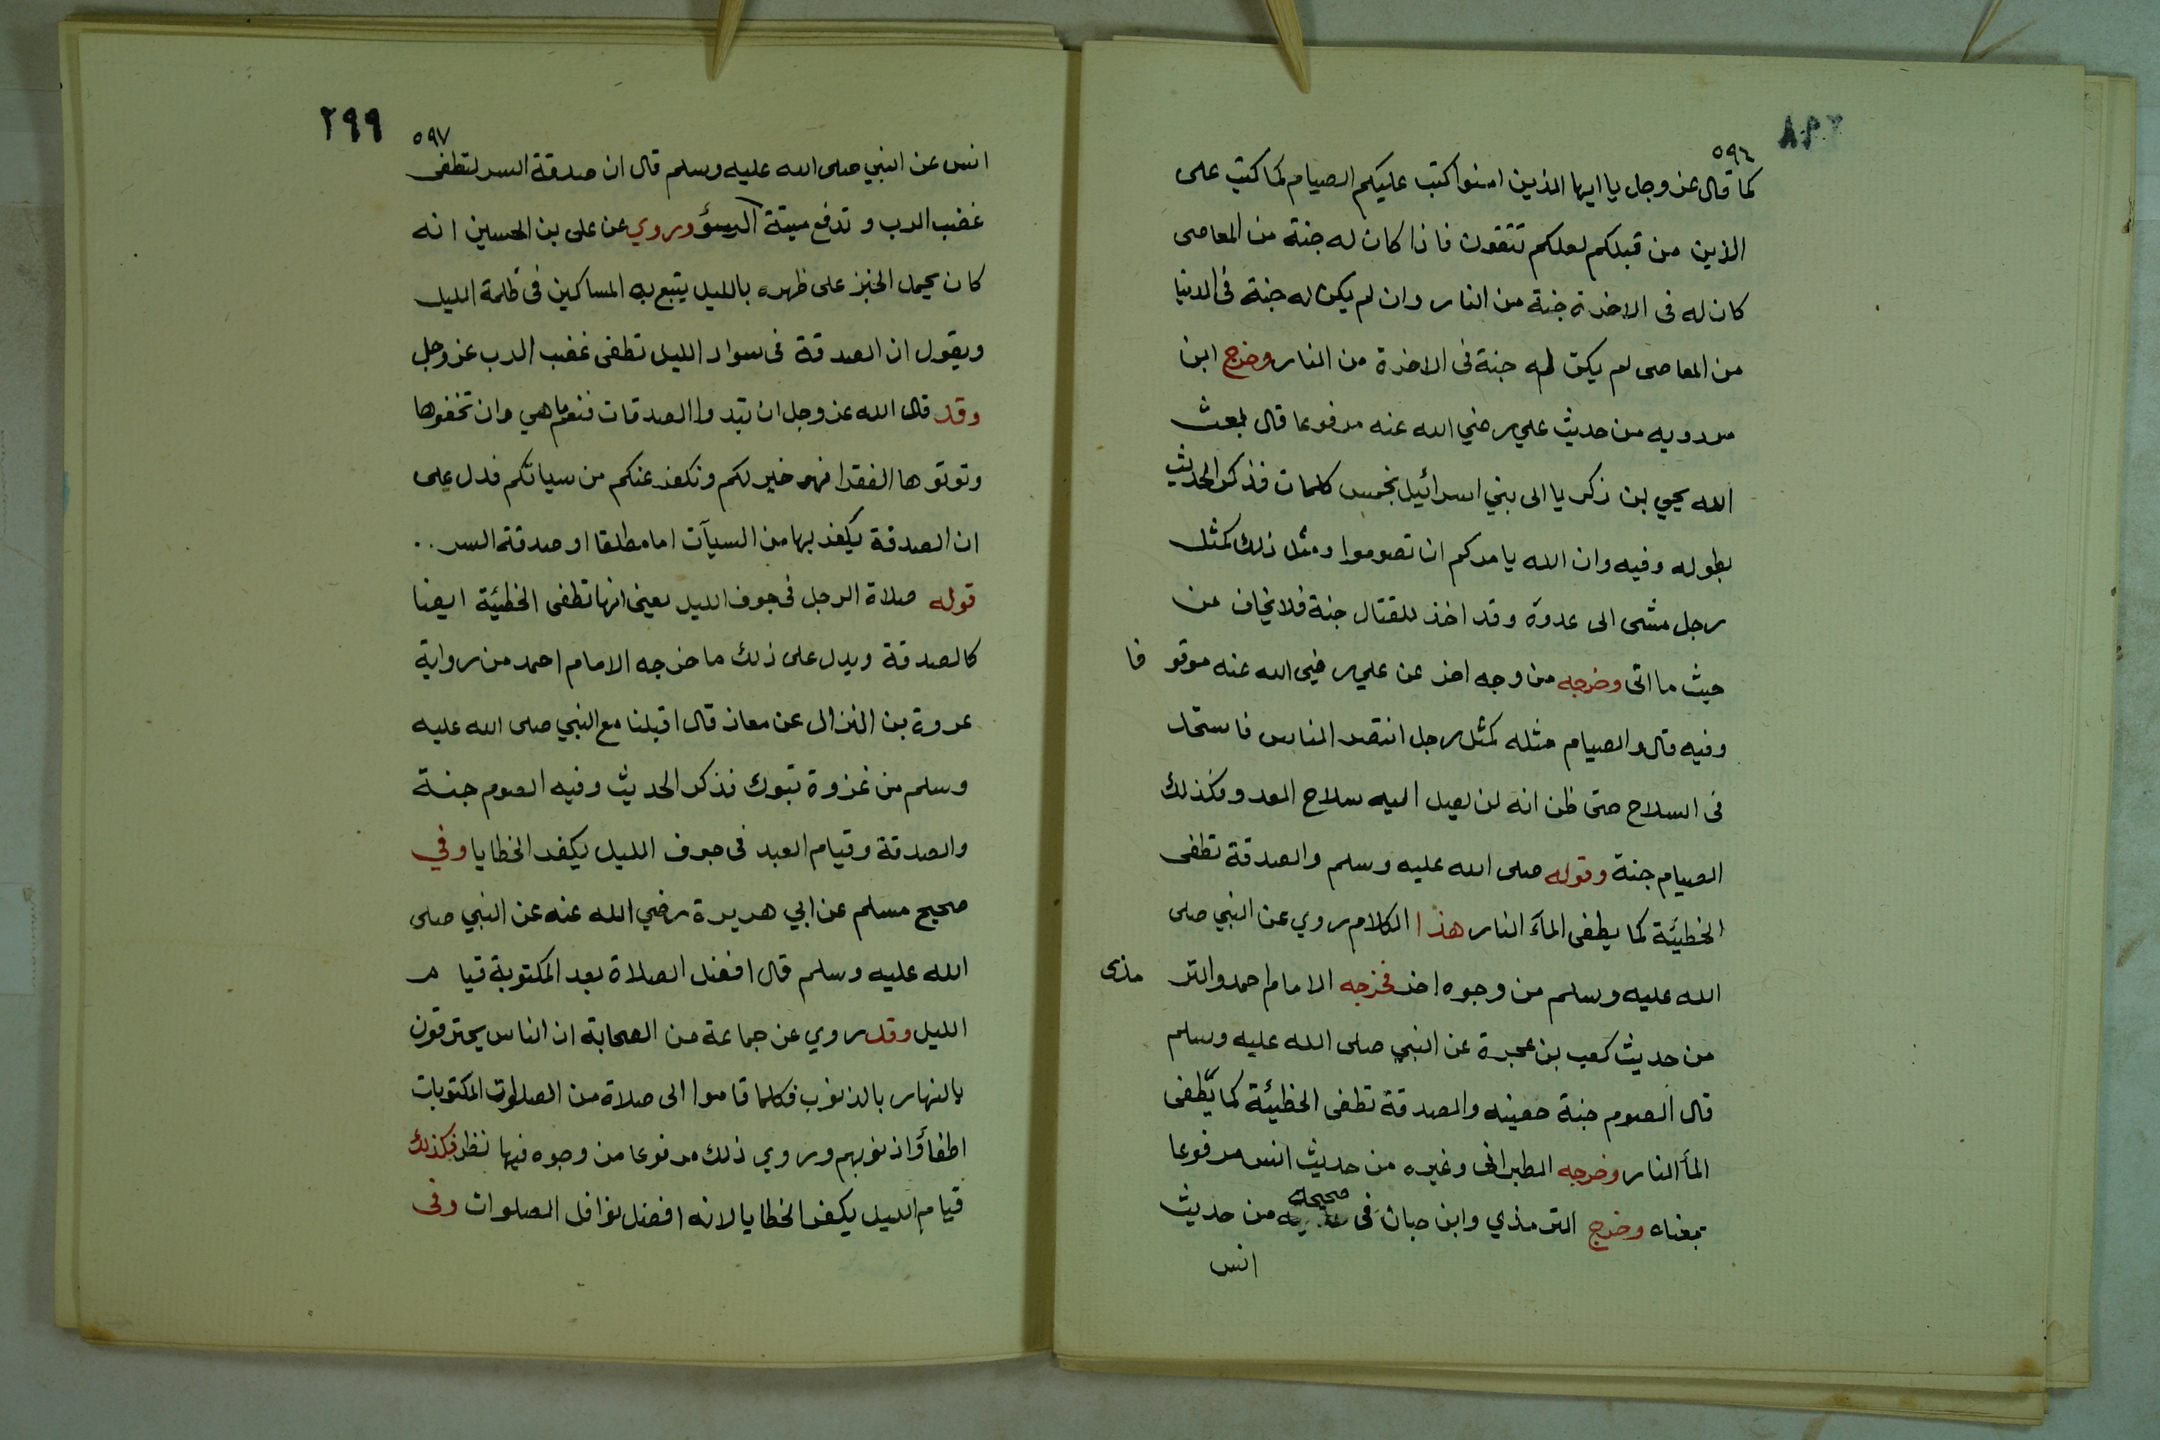 ٢٩٨
٥٩٦
كما قال عز وجل يا ايها الذين امنوا كتب عليكم الصيام كما كتب على
الذين من قبلكم لعلكم تتقون فاذا كان له جنة من المعاصى
كان له فى الاخرة جنة من النار وان لم يكن له جنة فى الدنيا
من المعاصى لم يكن له جنة فى الاخرة من النار وخرج ابن
مردويه من حديث علي رضي الله عنه مرفوعا قال بعث
الله يحيي بن زكريا الى بني اسرائيل بخمس كلمات فذكر الحديث
بطوله وفيه وان الله يامركم ان تصوموا ومثل ذلك كمثل
رجل مشى الى عدوه وقد اخذ للقتال جنة فلا يخاف من
حيث ما اتى وخرجه من وجه اخر عن علي رضي الله عنه موقوفا
وفيه قال والصيام مثله كمثل رجل انتصر الناس فاستحد
فى السلاح حتى ظن انه لن يصل اليه سلاح العدو فكذلك
الصيام جنة وقوله صلى الله عليه وسلم والصدقة تطفى
الخطيئة كما يطفى المآء النار هذا الكلام روي عن النبي صلى
الله عليه وسلم من وجوه اخر فخرجه الامام احمد والترمذى
من حديث كعب بن عجرة عن النبي صلى الله عليه وسلم
قال الصوم جنة حصينه والصدقة تطفى الخطيئة كما يطفى
المأ النار وخرجه الطبرانى وغيره من حديث انس مرفوعا
بمعناه وخرج الترمذي وابن حبان فى صحيحه من حديث
انس
٢٩٩
٥٩٧
انس عن النبي صلى الله عليه وسلم قال ان صدقة السر لتطفى
غضب الرب وتدفع ميتة السؤ وروي عن على بن الحسين انه
كان يحمل الخبز على ظهره بالليل يتبع به المساكين فى ظلمة الليل
ويقول ان الصدقة فى سواد الليل تطفى غضب الرب عز وجل
وقد قال الله عز وجل ان تبدوا الصدقات فنعما هي وان تخفوها
وتوتوها الفقرا فهو خير لكم ونكفر عنكم من سياتكم فدل على
ان الصدقة يكفر بها من السيآت اما مطلقا او صدقة السر ..
قوله صلاة الرجل فى جوف الليل يعنى انها تطفى الخطيئة ايضا
كالصدقة ويدل على ذلك ما خرجه الامام احمد من رواية
عروة بن النزال عن معاذ قال اقبلنا مع النبي صلى الله عليه
وسلم من غزوة تبوك فذكر الحديث وفيه الصوم جنة
والصدقة وقيام العبد فى جوف الليل يكفر الخطايا وفي
صحيح مسلم عن ابي هريرة رضي الله عنه عن النبي صلى
الله عليه وسلم قال افضل الصلاة بعد المكتوبة قيام
الليل وقد روي عن جماعة من الصحابة ان الناس يحترقون
بالنهار بالذنوب فكلما قاموا الى صلاة من الصلوات المكتوبات
اطفأوا ذنوبهم وروي ذلك مرفوعا من وجوه فيها نظر فكذلك
قيام الليل يكفر الخطايا لانه افضل نوافل الصلوات وفى